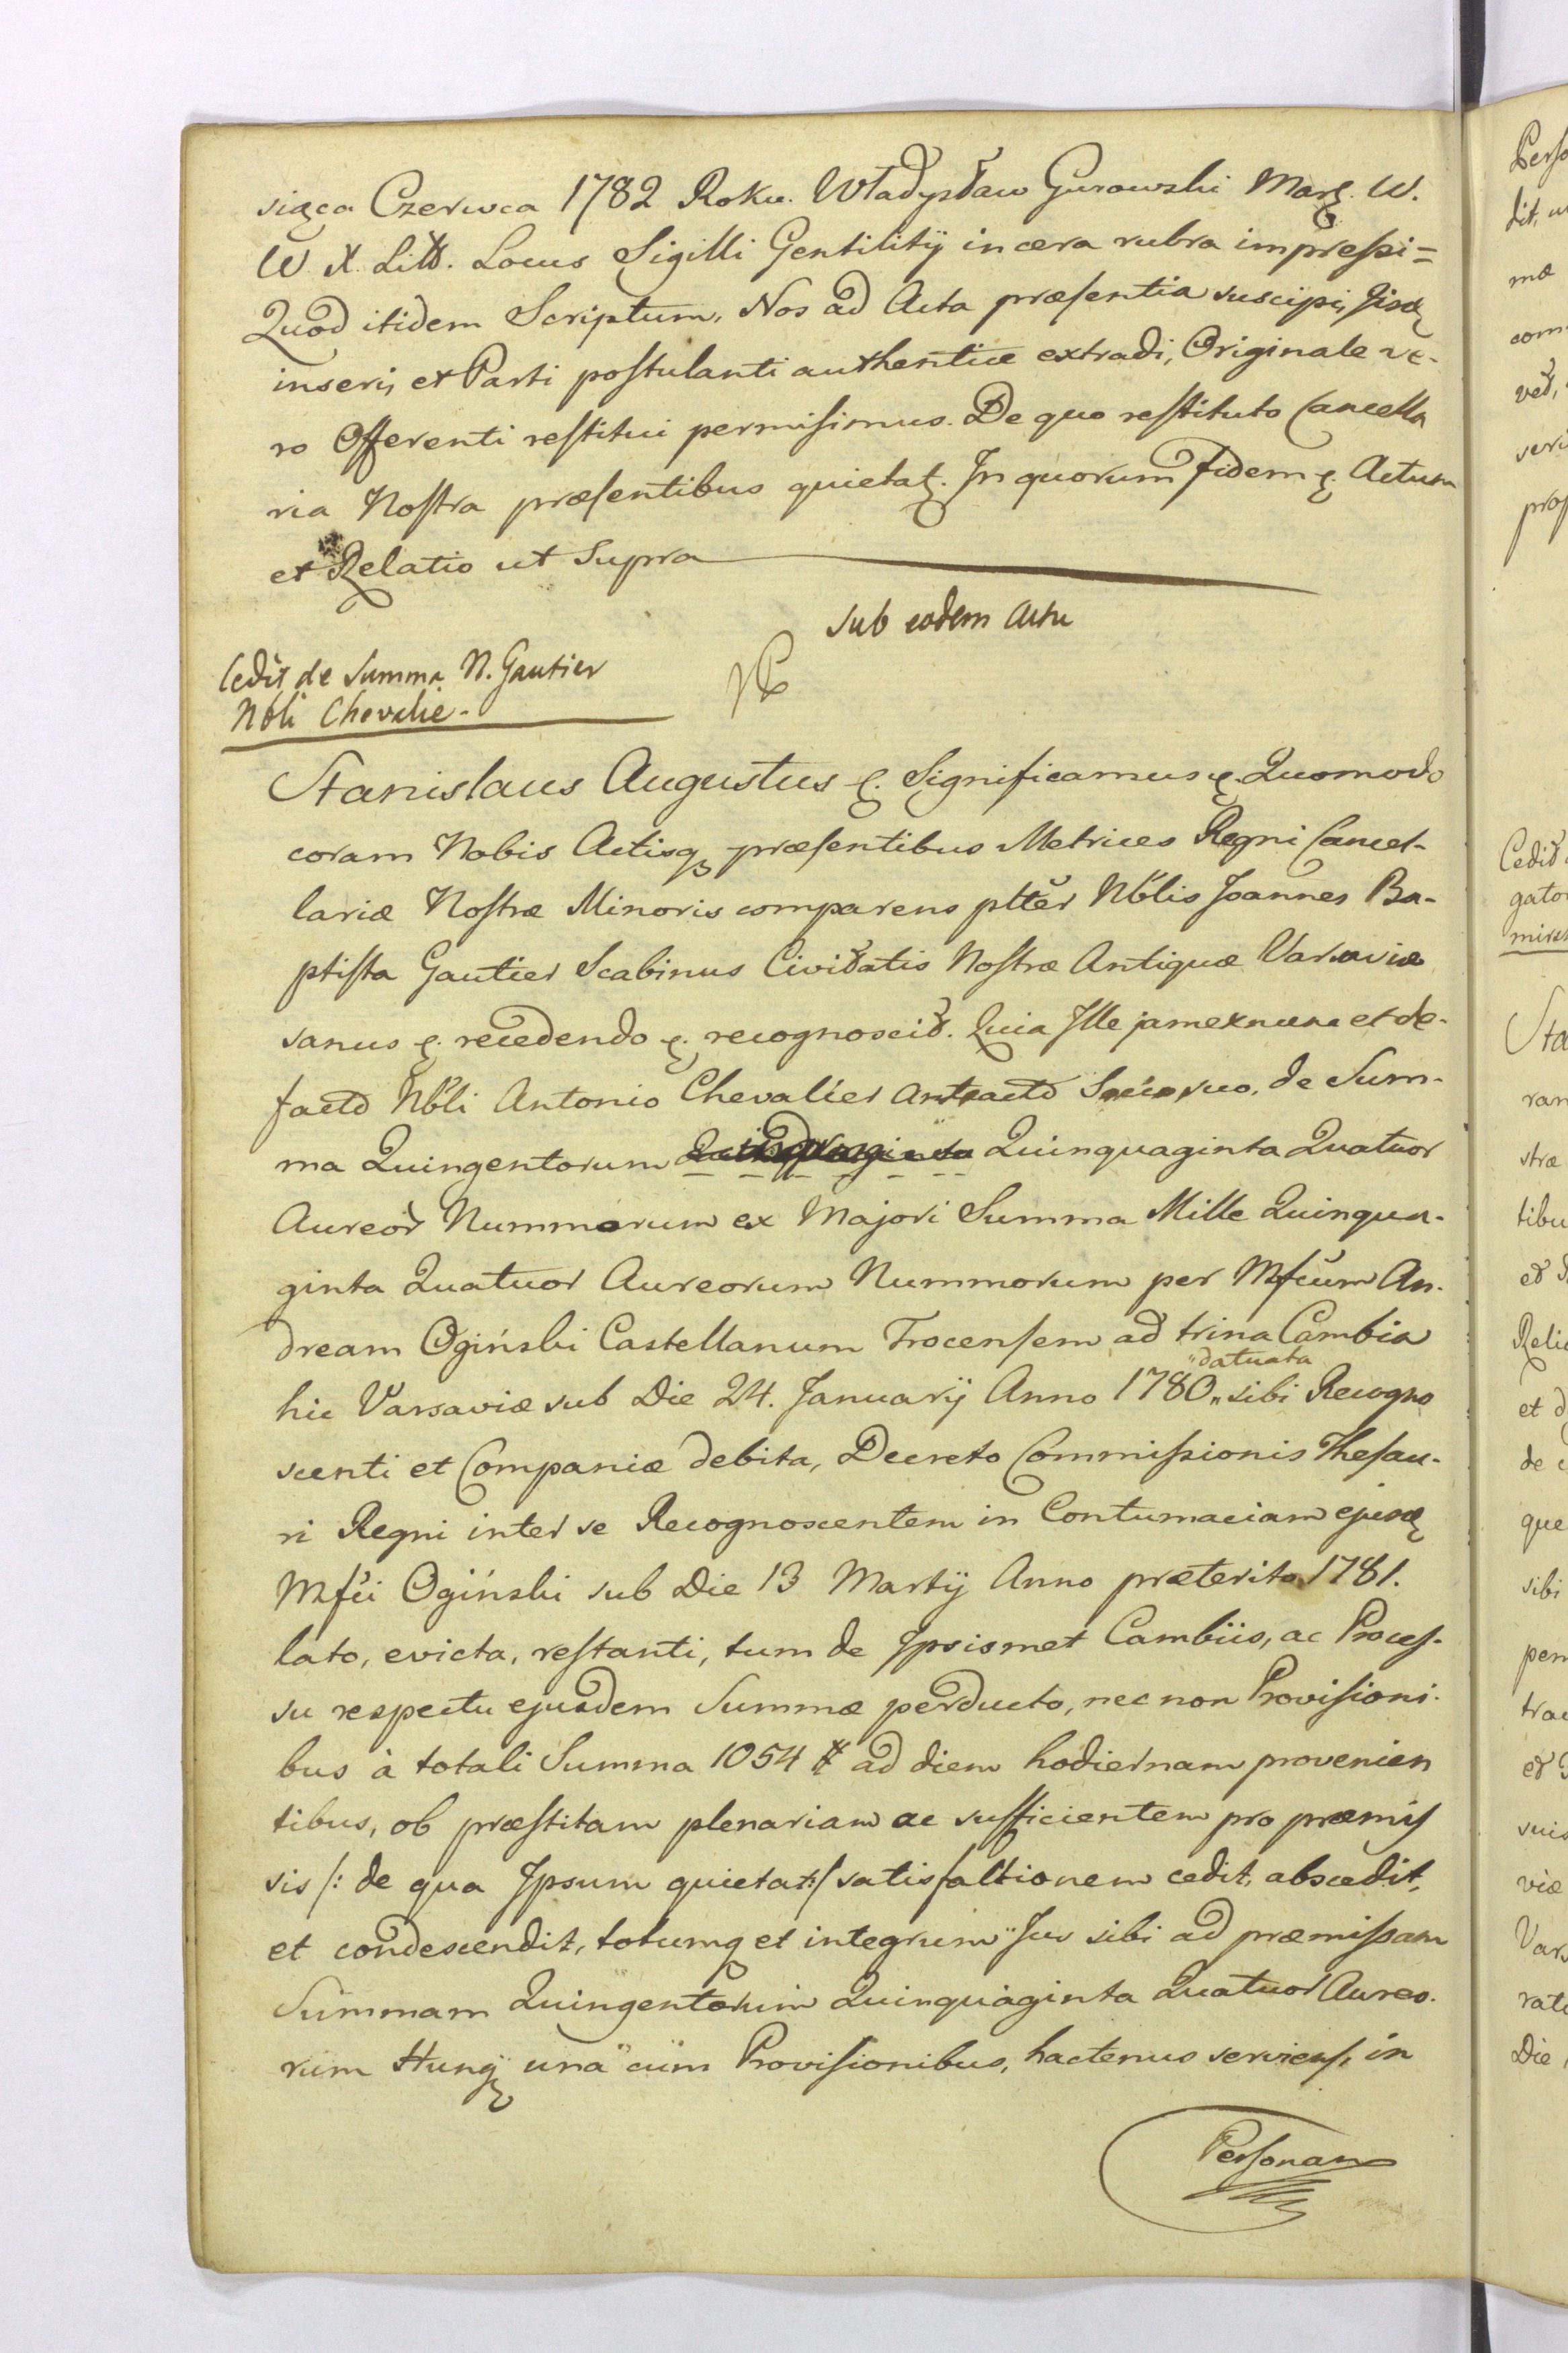 siąca Czerwca 1782 Roku. Władysław Gurowski Marɀ. W.
W X. Litt. Locus Sigilli Gentilitij in cera rubra impressi=
Quod itidem Scriptum, Nos ad Acta præsentia suscipi, Jisdɀ
inseri, et Parti postulanti authentice extradi, Originale ve-
ro Offerenti restitui permisimus. De quo restituto Cancella
ria Nostra præsentibus quietatɀ. In quorum fidem ɀ. Actum
et Relatio ut Supra
sub eodem Actu
Cedit de Summa N. Gautier
Nbli Chevalie.
Stanislaus Augustus ɀ. Significamus ɀ. Quomodo
coram Nobis Actisqɀ præsentibus Metrices Regni Cancel-
lariæ Nostræ Minoris comparens pltter Nblis Joannes Ba-
ptista Gautier Scabinus Civitatis Nostræ Antiquæ Varsaviæ
sanus ɀ. recedendo ɀ. recognoscit. Quia Ille jam ex nunc et de-
facto Nbli Antonio Chevalier anteacto Socio suo, de Sum-
ma Quingentorum Quinquaginta Quatuor
Aureor Nummorum ex Majori Summa Mille Quinqua-
ginta Quatuor Aureorum Nummorum per Mfcum An-
dream Ogiński Castellanum Trocensem ad trina Cambia
hic Varsaviæ sub Die 24. Januarij Anno 1780 " datuata sibi Recogno
scenti et Companiæ debita, Decreto Commissionis Thesau-
ri Regni inter se Recognoscentem in Contumaciam ejusdɀ
Mfci Ogiński sub Die 13 Martij Anno præterito 1781.
lato, evicta, restanti, tum de Ipsismet Cambiis, ac Proces-
su respectu ejusdem Summæ perducto, nec non Provisioni-
bus à totali Summa 1054 # ad diem hodiernam provenien
tibus, ob præstitam plenariam ac sufficientem pro præmis
sis /: de qua Ipsum quietat :/ satisfactionem cedit, abscedit,
et condescendit, totumqɀ et integrum Jus sibi ad præmissam
Summam Quingentorum Quinquaginta Quatuor Aureo-
rum Hungɀ una cum Provisionibus, hactenus serviens, in
Personam
Perso
dit, u
mæ
com
ved,
seri
prop
Cedit
gato
Sta
ran
stræ
tibu
et
Reli
et d
de
que
sibi
per
tra
et
suis
viæ
Vars
rati
Die